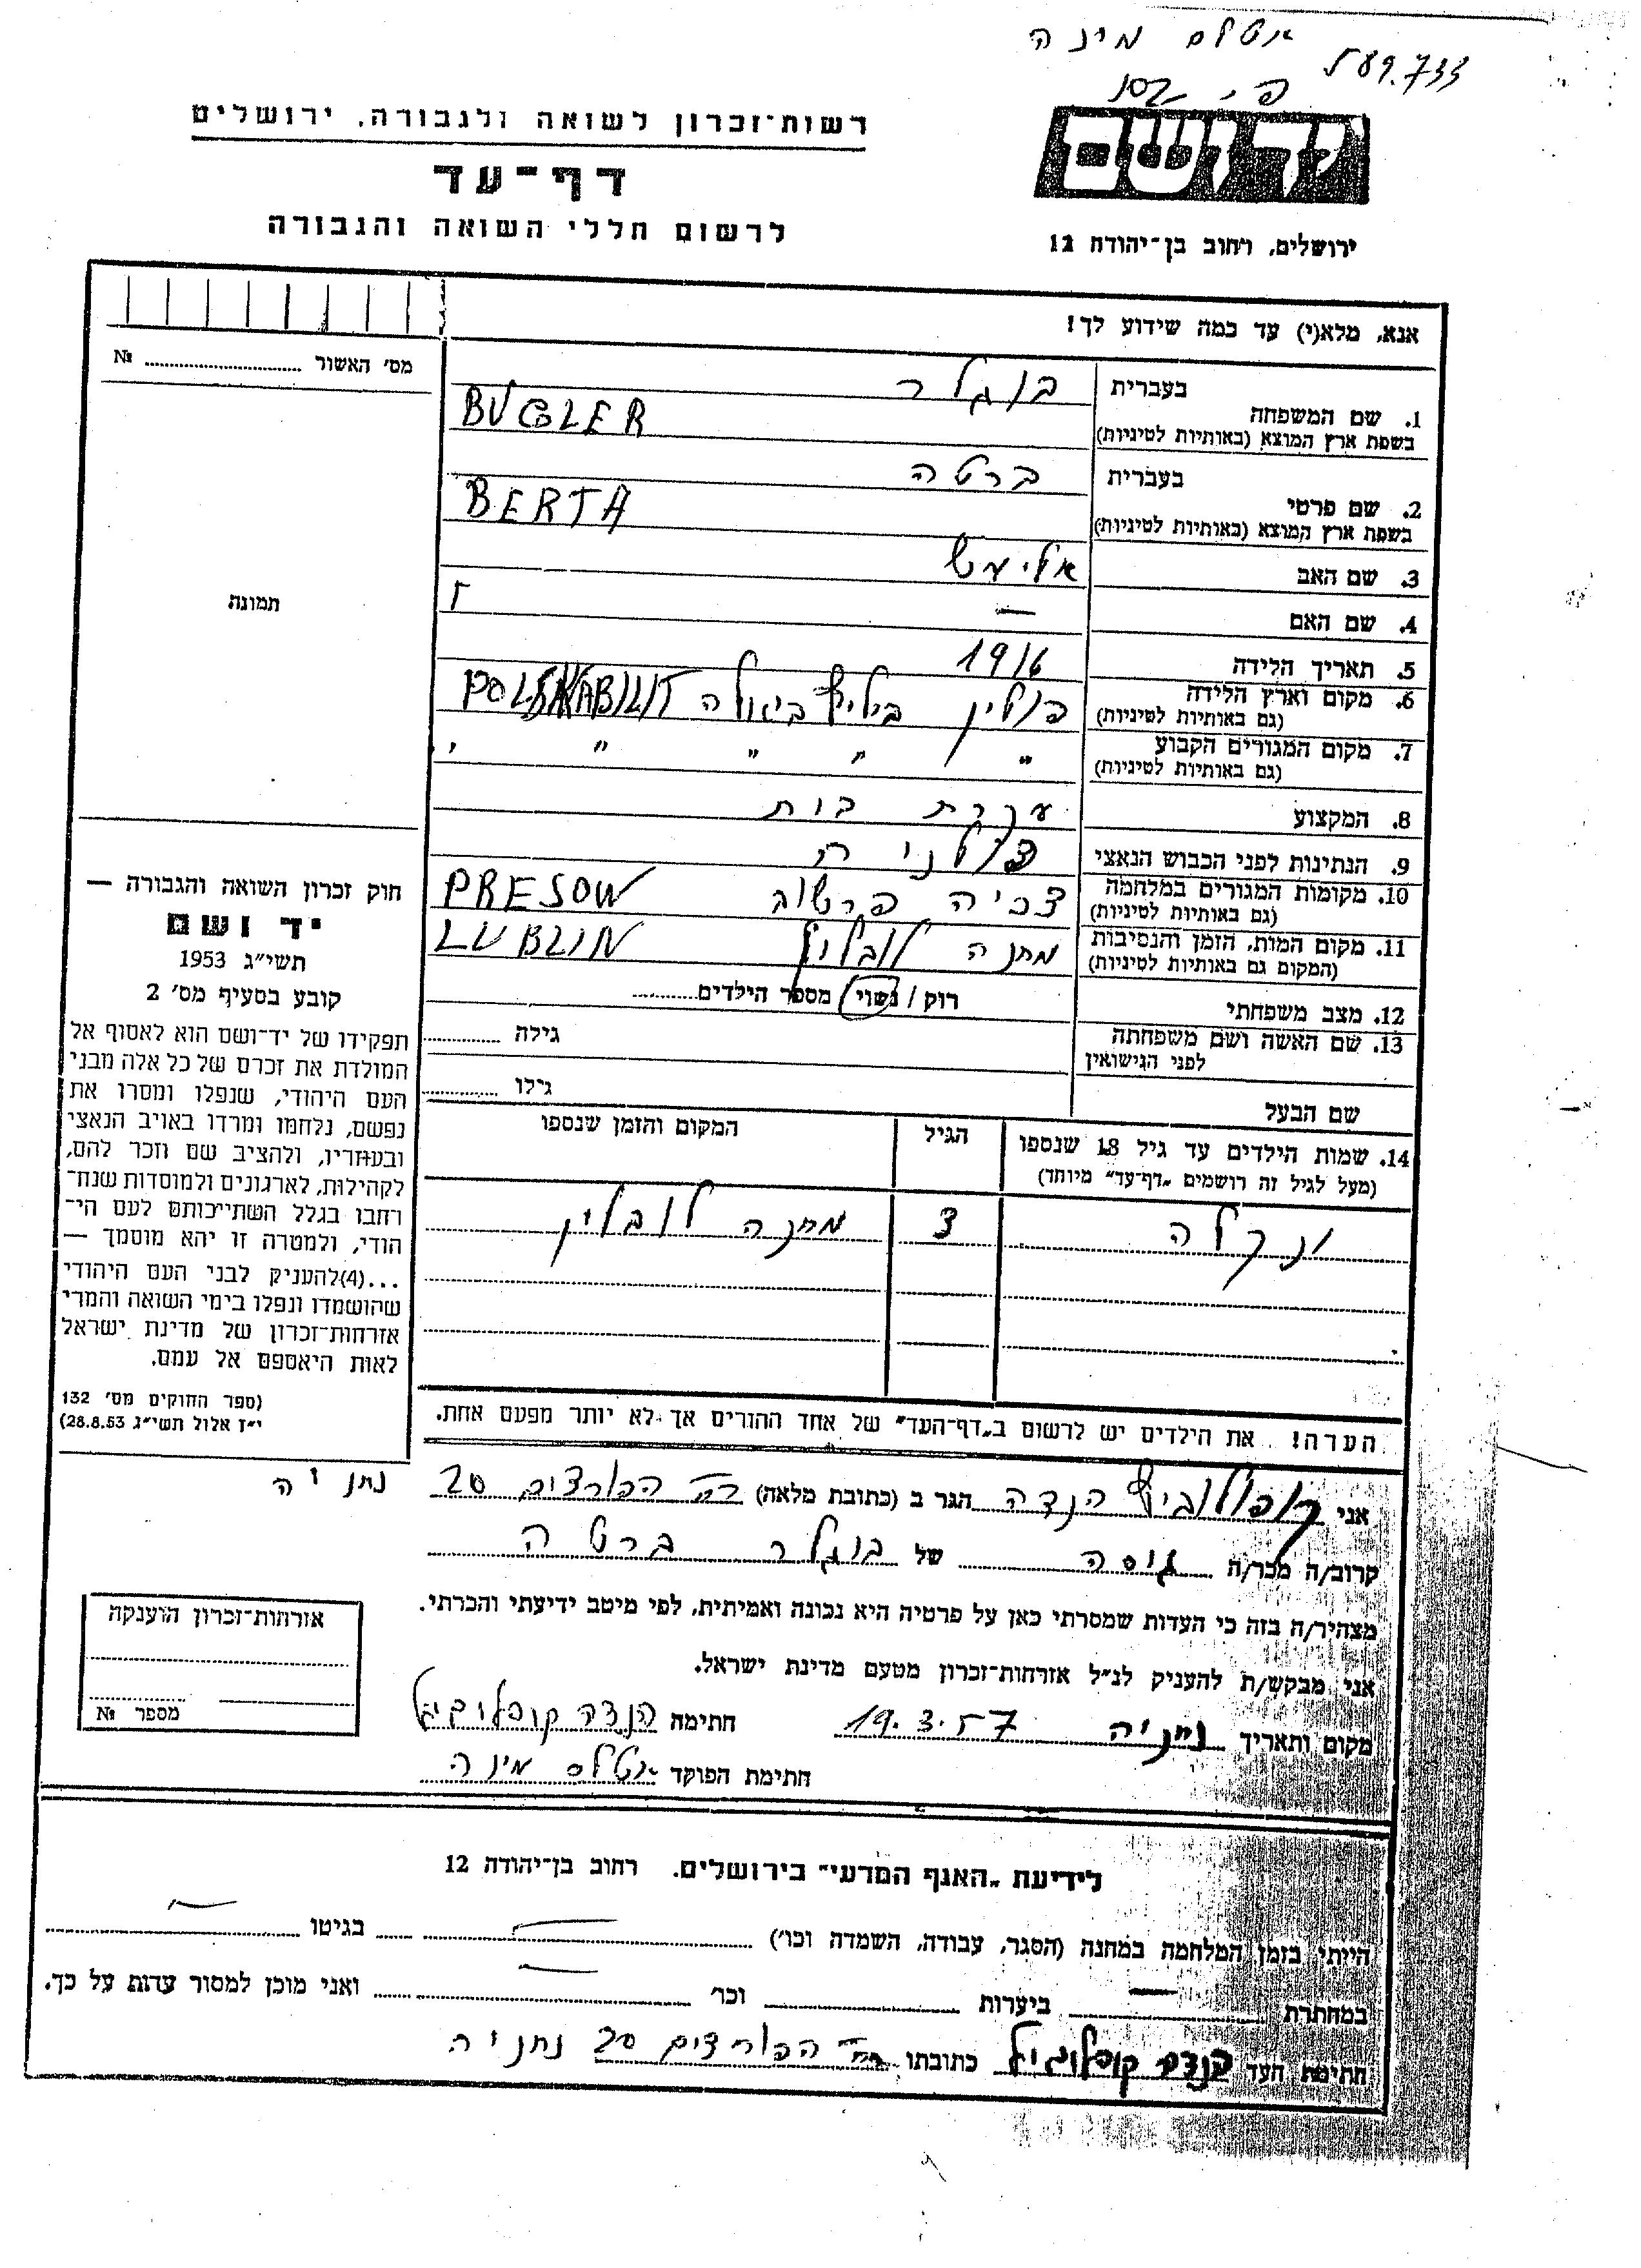 אטלס מינה
589.733
רשות־זכרון לשואה ולגבורה, ירושלים
דף־עד
לרשום חללי השואה והגבורה
יד ושם
ירושלים, רחוב בן־יהודה 12
אנא, מלא(י) עד כמה שידוע לך!
מס׳ האשור № 
תמונה
1. שם המשפחה בעברית בוגלר
בשפת ארץ המוצא (באותיות לטיניות) BUGLER
2. שם פרטי בעברית ברטה
בשפת ארץ המוצא (באותיות לטיניות) BERTA
3. שם האב
4. שם האם —
5. תאריך הלידה 1916
6. מקום וארץ הלידה פולין
(גם באותיות לטיניות)
7. מקום המגורים הקבוע " " " "
(גם באותיות לטיניות)
8. המקצוע עקרת בית
9. הנתינות לפני הכבוש הנאצי פולניה
10. מקומות המגורים במלחמה צכיה פרשוב PRESOW
(גם באותיות לטיניות)
11. מקום המות, הזמן והנסיבות מחנה לובלין LUBLIN
(המקום גם באותיות לטיניות)
12. מצב משפחתי רוק / נשוי / מספר הילדים
13. שם האשה ושם משפחתה גילה
לפני הנישואין
שם הבעל גילו
14. שמות הילדים עד גיל 18 שנספו הגיל המקום והזמן שנספו
(מעל לגיל זה רושמים „דף־עד" מיוחד)
3 מחנה לובלין
הערה! את הילדים יש לרשום ב„דף־העד" של אחד ההורים אך לא יותר מפעם אחת.
חוק זכרון השואה והגבורה —
יד ושם
תשי״ג 1953
קובע בסעיף מס׳ 2
תפקידו של יד־ושם הוא לאסוף אל
המולדת את זכרם של כל אלה מבני
העם היהודי, שנפלו ומסרו את
נפשם, נלחמו ומרדו באויב הנאצי
ובעוזריו, ולהציב שם וזכר להם,
לקהילות, לארגונים ולמוסדות שנח־
רבו בגלל השתייכותם לעם הי־
הודי, ולמטרה זו יהא מוסמך —
...(4) להעניק לבני העם היהודי
שהושמדו ונפלו בימי השואה והמרי
אזרחות־זכרון של מדינת ישראל
לאות היאספם אל עמם.
(ספר החוקים מס׳ 132
י״ז אלול תשי״ג 28.8.53)
אני קופולוביץ הנדה הגר ב (כתובת מלאה) רח׳ הפורצים 20 נתניה
קרוב/ה מכר/ה גיסה של בוגלר ברטה
מצהיר/ה בזה כי העדות שמסרתי כאן על פרטיה היא נכונה ואמיתית, לפי מיטב ידיעתי והכרתי.
אני מבקש/ת להעניק לנ״ל אזרחות־זכרון מטעם מדינת ישראל.
מקום ותאריך נתניה 19.3.57 חתימה הנדה קופלוביץ
חתימת הפוקד אטלס מינה
אזרחות־זכרון הוענקה
מספר №
לידיעת „האגף המדעי" בירושלים, רחוב בן־יהודה 12
הייתי בזמן המלחמה במחנה (הסגר, עבודה, השמדה וכו׳) — בגיטו —
במחתרת — ביערות וכו׳ — ואני מוכן למסור עדות על כך.
חתימת העד הנדה קופלוביץ כתובתו רח׳ הפורצים 20 נתניה